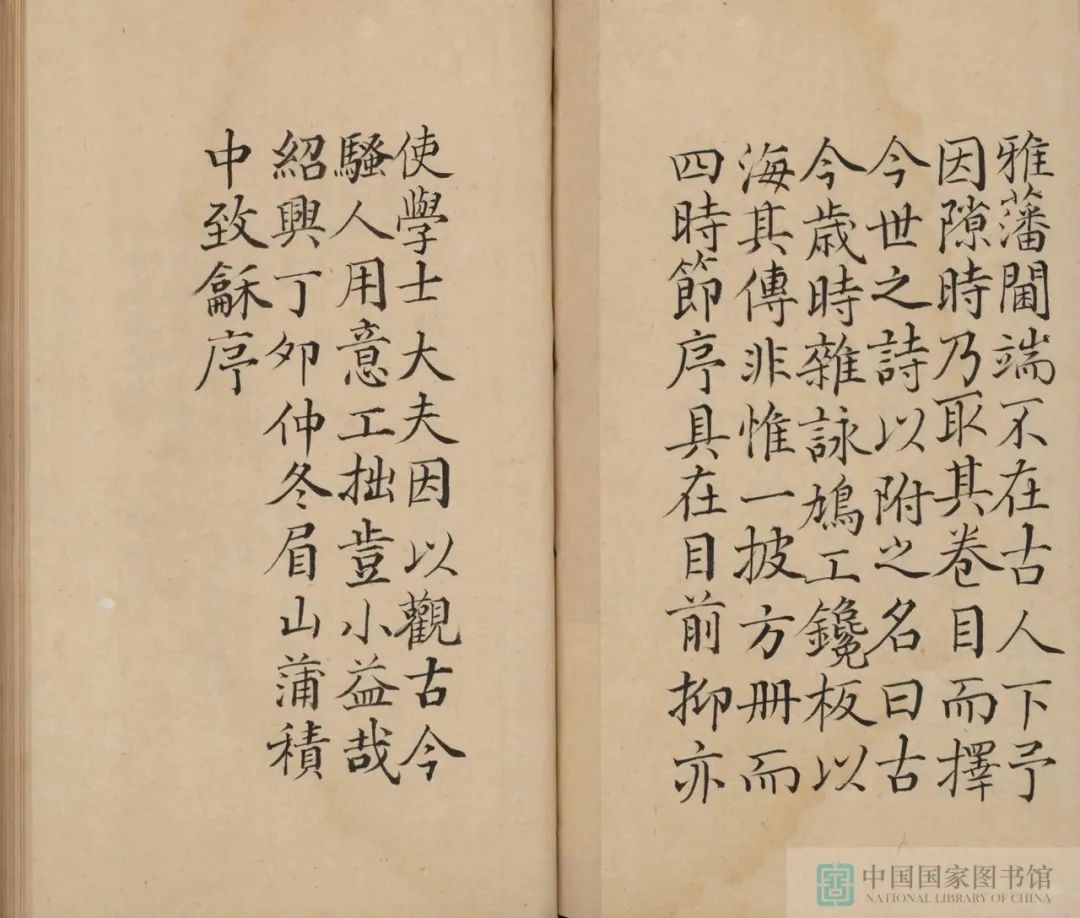 雅藩閫端不在古人下予
因隙時乃取其卷目而擇
今世之詩以附之名曰古
今歲時雜詠鳩工鑱板以
海其傳非惟一披方冊而
四時節序具在目前抑亦
使學士大夫因以觀古今
騷人用意工拙豈小益哉
紹興丁夘仲冬眉山蒲積
中致龢序
中国国家图书馆
NATIONAL LIBRARY OF CHINA